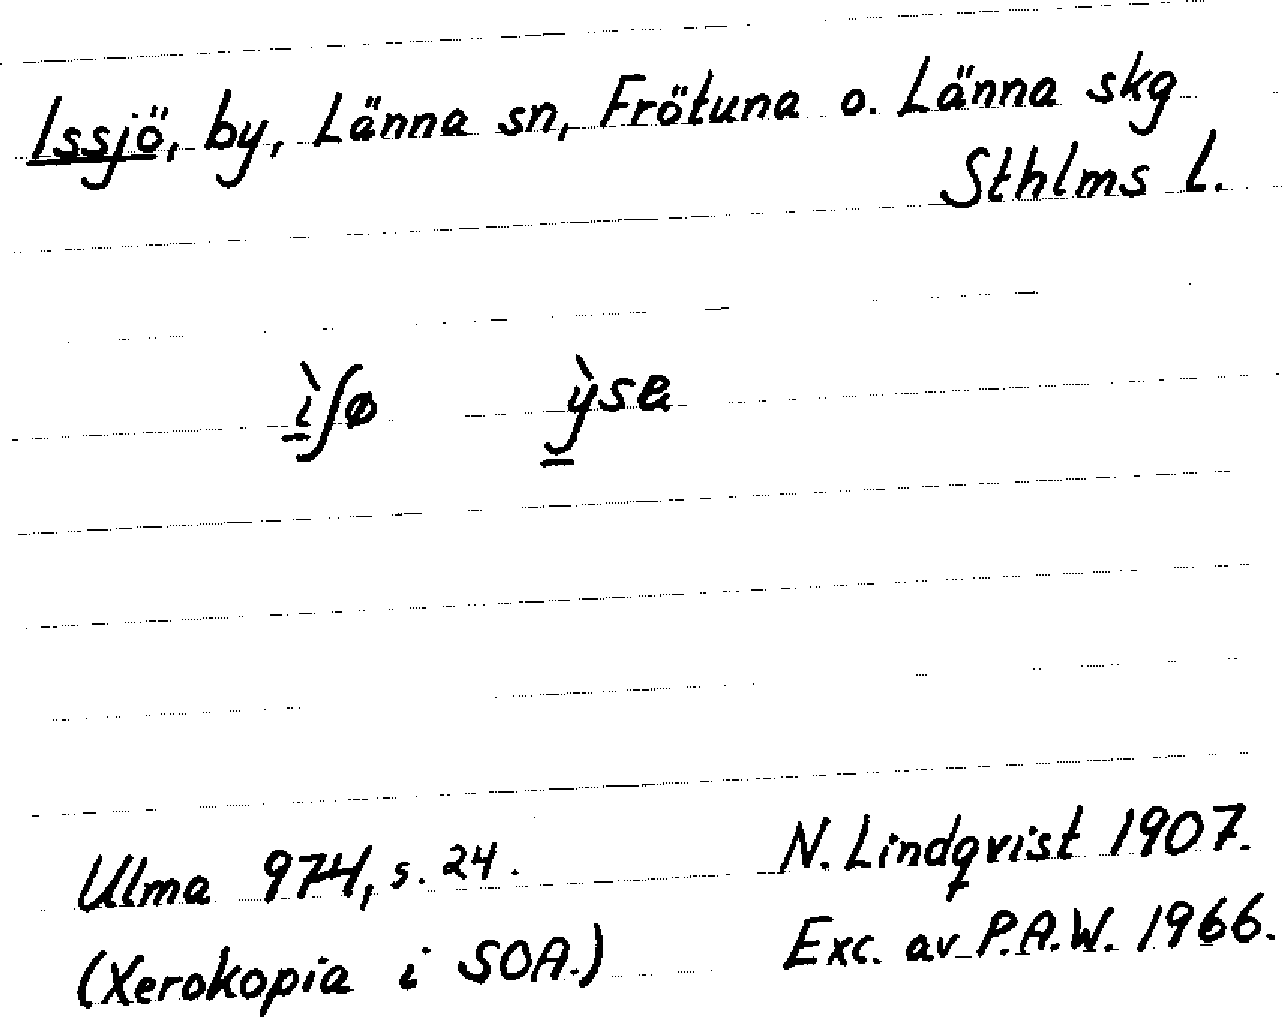 Issjö, by, Länna sn, Frötuna o. Länna skg
Sthlms l.
ì̱ʃø ỳ̱sa
Ulma 974, s. 24. N. Lindqvist 1907.
(Xerokopia i SOA.) Exc. av P.A.W. 1966.